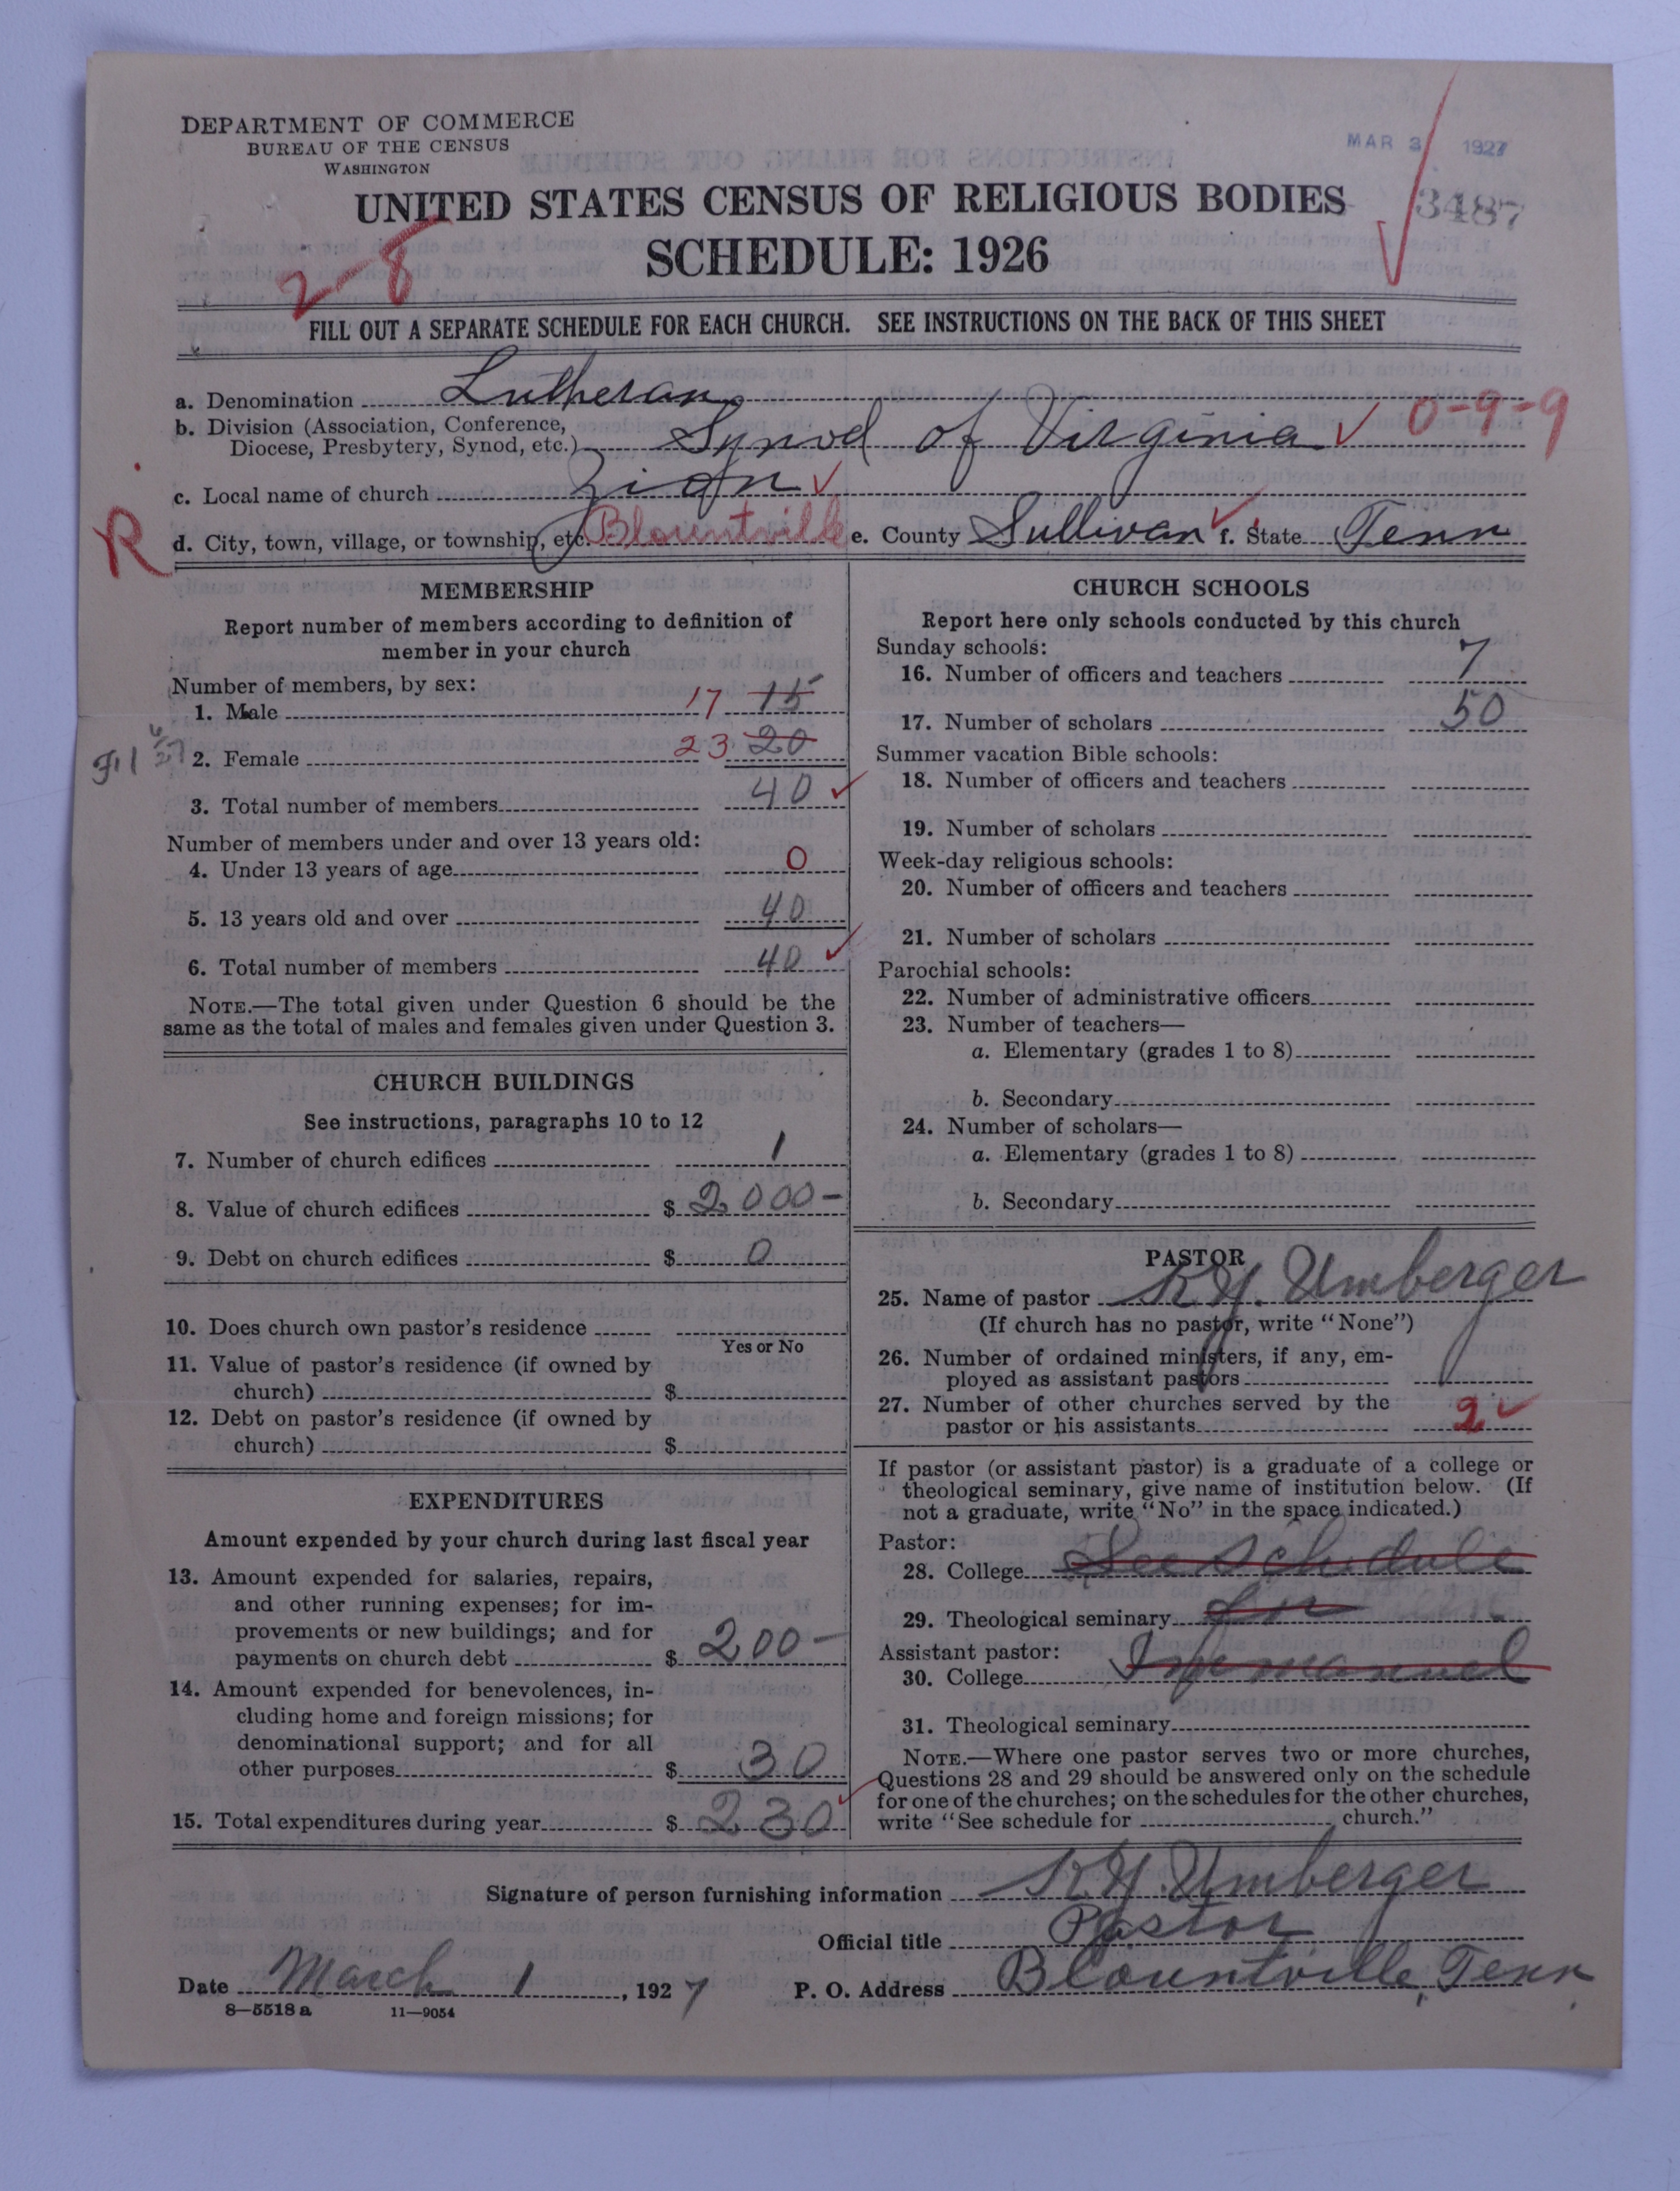 DEPARTMENT OF COMMERCE
BUREAU OF THE CENSUS
WASHINGTON
MAR 3 1927
UNITED STATES CENSUS OF RELIGIOUS BODIES
3487
SCHEDULE: 1926
2-8
FILL OUT A SEPARATE SCHEDULE FOR EACH CHURCH. SEE INSTRUCTIONS ON THE BACK OF THIS SHEET
a. Denomination Lutheran
b. Division (Association, Conference, Diocese, Presbytery, Synod, etc.) Synod of Virginia 0-9-9
c. Local name of church Zion
R
d. City, town, village, or township, etc. Blountville e. County Sullivan f. State Tenn
MEMBERSHIP
Report number of members according to definition of
member in your church
Number of members, by sex:
1. Male 17 15
2. Female 23 20
3. Total number of members 40
Number of members under and over 13 years old:
4. Under 13 years of age 0
5. 13 years old and over 40
6. Total number of members 40
NOTE.—The total given under Question 6 should be the
same as the total of males and females given under Question 3.
CHURCH BUILDINGS
See instructions, paragraphs 10 to 12
7. Number of church edifices 1
8. Value of church edifices $ 2000-
9. Debt on church edifices $ 0
10. Does church own pastor's residence
Yes or No
11. Value of pastor's residence (if owned by
church) $
12. Debt on pastor's residence (if owned by
church) $
EXPENDITURES
Amount expended by your church during last fiscal year
13. Amount expended for salaries, repairs,
and other running expenses; for im-
provements or new buildings; and for
payments on church debt $ 200-
14. Amount expended for benevolences, in-
cluding home and foreign missions; for
denominational support; and for all
other purposes $ 30
15. Total expenditures during year $ 230
CHURCH SCHOOLS
Report here only schools conducted by this church
Sunday schools:
16. Number of officers and teachers 7
17. Number of scholars 50
Summer vacation Bible schools:
18. Number of officers and teachers
19. Number of scholars
Week-day religious schools:
20. Number of officers and teachers
21. Number of scholars
Parochial schools:
22. Number of administrative officers
23. Number of teachers—
a. Elementary (grades 1 to 8)
b. Secondary
24. Number of scholars—
a. Elementary (grades 1 to 8)
b. Secondary
PASTOR
25. Name of pastor K.Y. Umberger
(If church has no pastor, write "None")
26. Number of ordained ministers, if any, em-
ployed as assistant pastors
27. Number of other churches served by the
pastor or his assistants 2
If pastor (or assistant pastor) is a graduate of a college or
theological seminary, give name of institution below. (If
not a graduate, write "No" in the space indicated.)
Pastor:
28. College See schedule
29. Theological seminary for
Assistant pastor:
30. College Immanuel
31. Theological seminary
NOTE.—Where one pastor serves two or more churches,
Questions 28 and 29 should be answered only on the schedule
for one of the churches; on the schedules for the other churches,
write "See schedule for church."
Signature of person furnishing information K.Y. Umberger
Official title Pastor
Date March 1, 1927 P. O. Address Blountville, Tenn
8—5518 a 11—9054